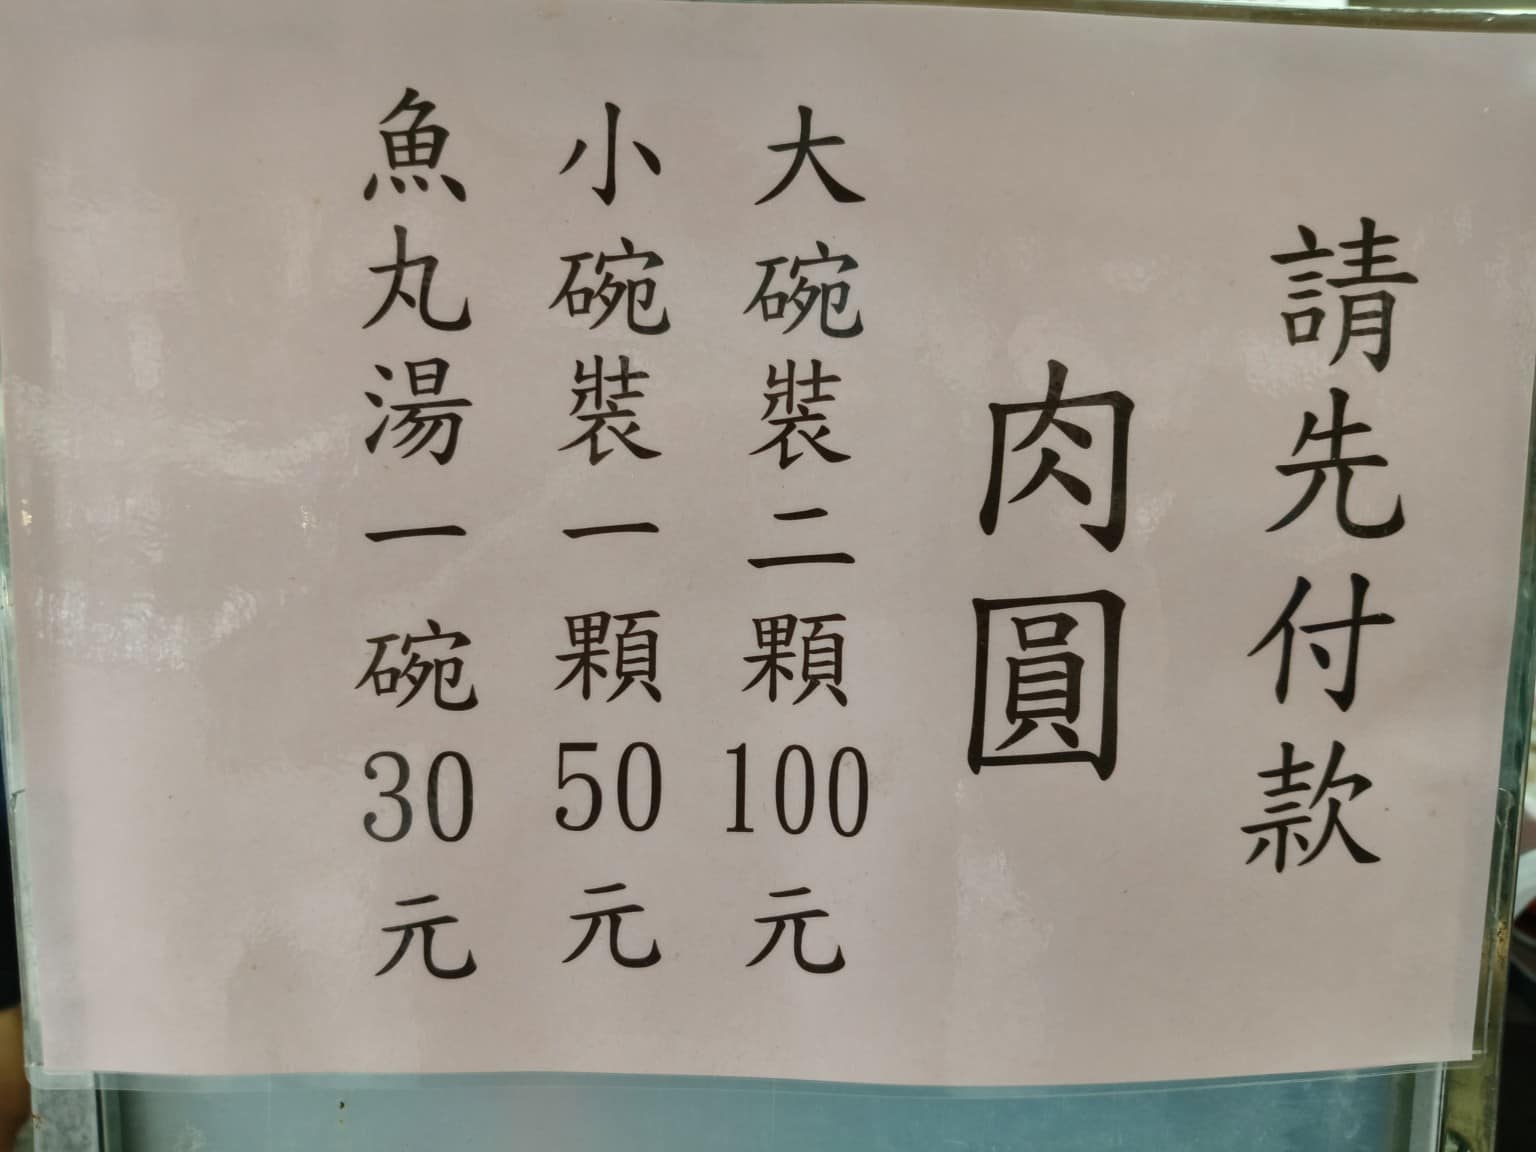 請先付款
肉圓
大碗裝二顆100元
小碗裝一顆50元
魚丸湯一碗30元